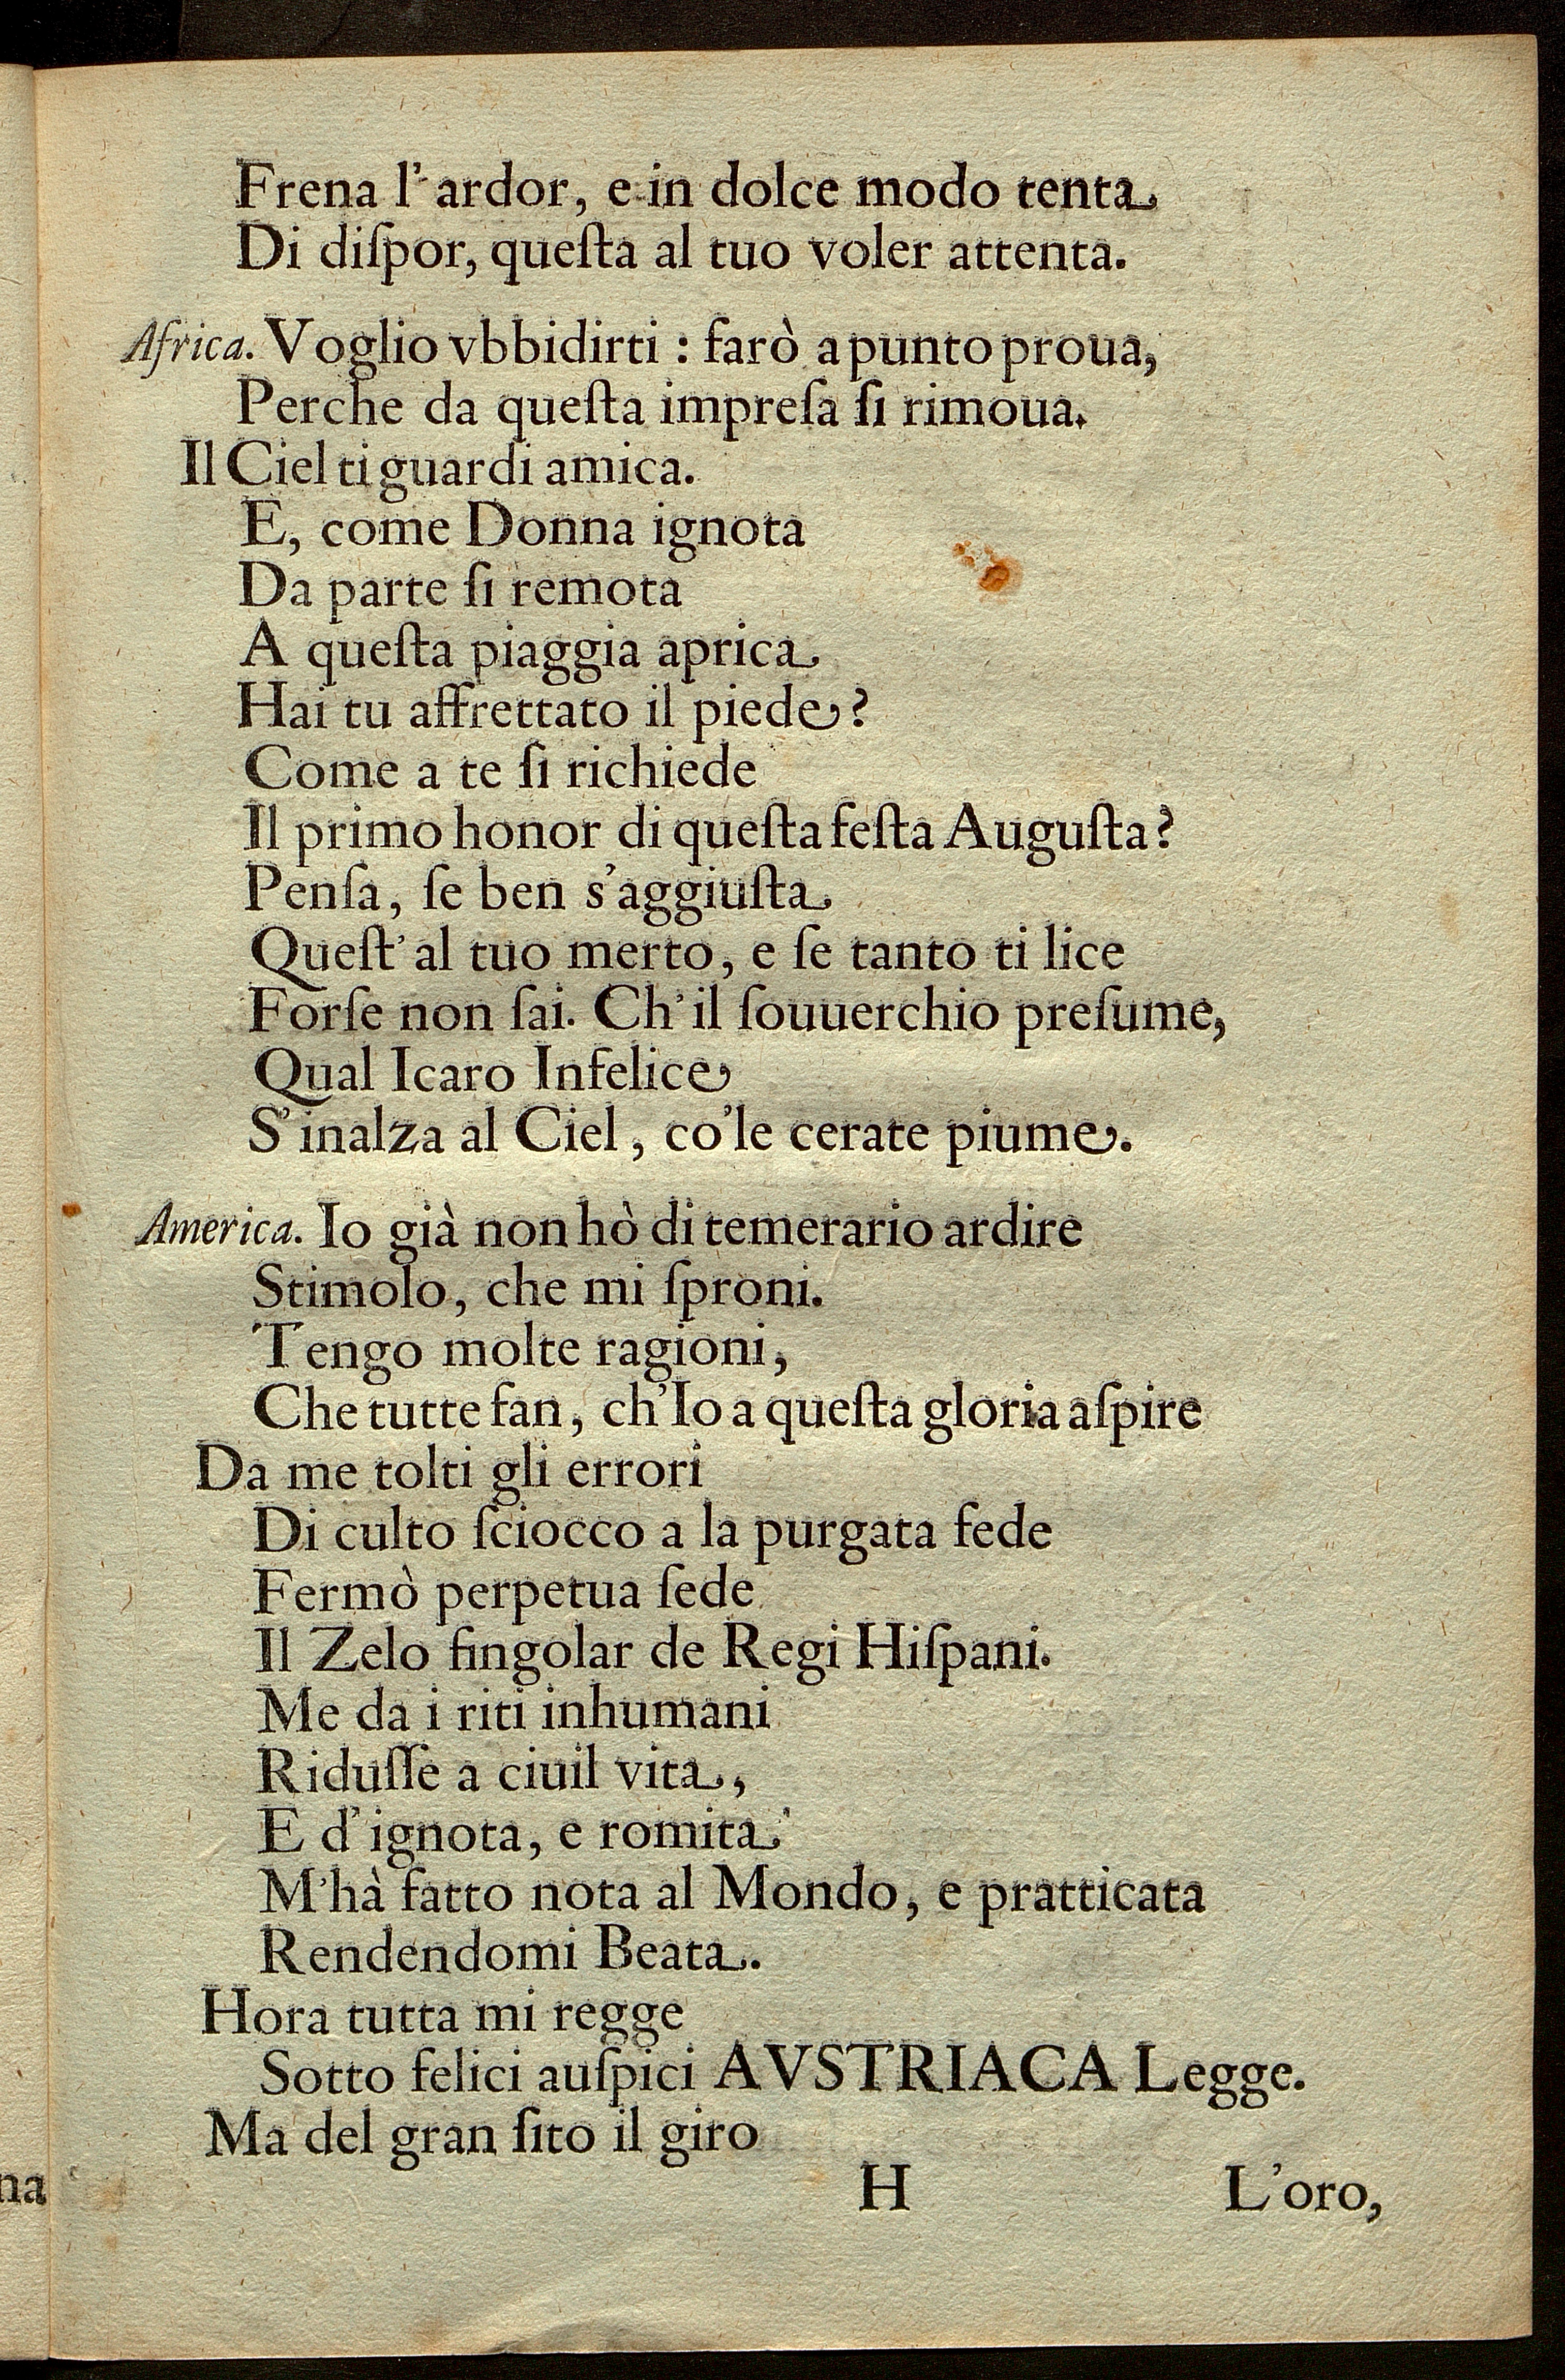 Frena l'ardor, e in dolce modo tenta
Di diſpor, queſta al tuo voler attenta.
Africa. Voglio vbbidirti : farò apunto proua,
Perche da queſta impreſa ſi rimoua.
Il Ciel ti guardi amica.
E, come Donna ignota
Da parte ſi remota
A queſta piaggia aprica
Hai tu affrettato il piede?
Come a te ſi richiede
Il primo honor di queſta feſta Auguſta?
Penſa, ſe ben s'aggiuſta
Queſt'al tuo merto, e ſe tanto ti lice
Forſe non ſai. Ch'il ſouuerchio preſume,
Qual Icaro Infelice
S'inalza al Ciel, co'le cerate piume.
America. Io già non hò di temerario ardire
Stimolo, che mi ſproni.
Tengo molte ragioni,
Che tutte fan, ch'Io a queſta gloria aſpire
Da me tolti gli errori
Di culto ſciocco a la purgata fede
Fermò perpetua ſede
Il Zelo ſingolar de Regi Hiſpani.
Me da i riti inhumani
Riduſſe a ciuil vita,
E d'ignota, e romita
M'hà fatto nota al Mondo, e pratticata
Rendendomi Beata.
Hora tutta mi regge
Sotto felici auſpici AVSTRIACA Legge.
Ma del gran ſito il giro
na
H L'oro,